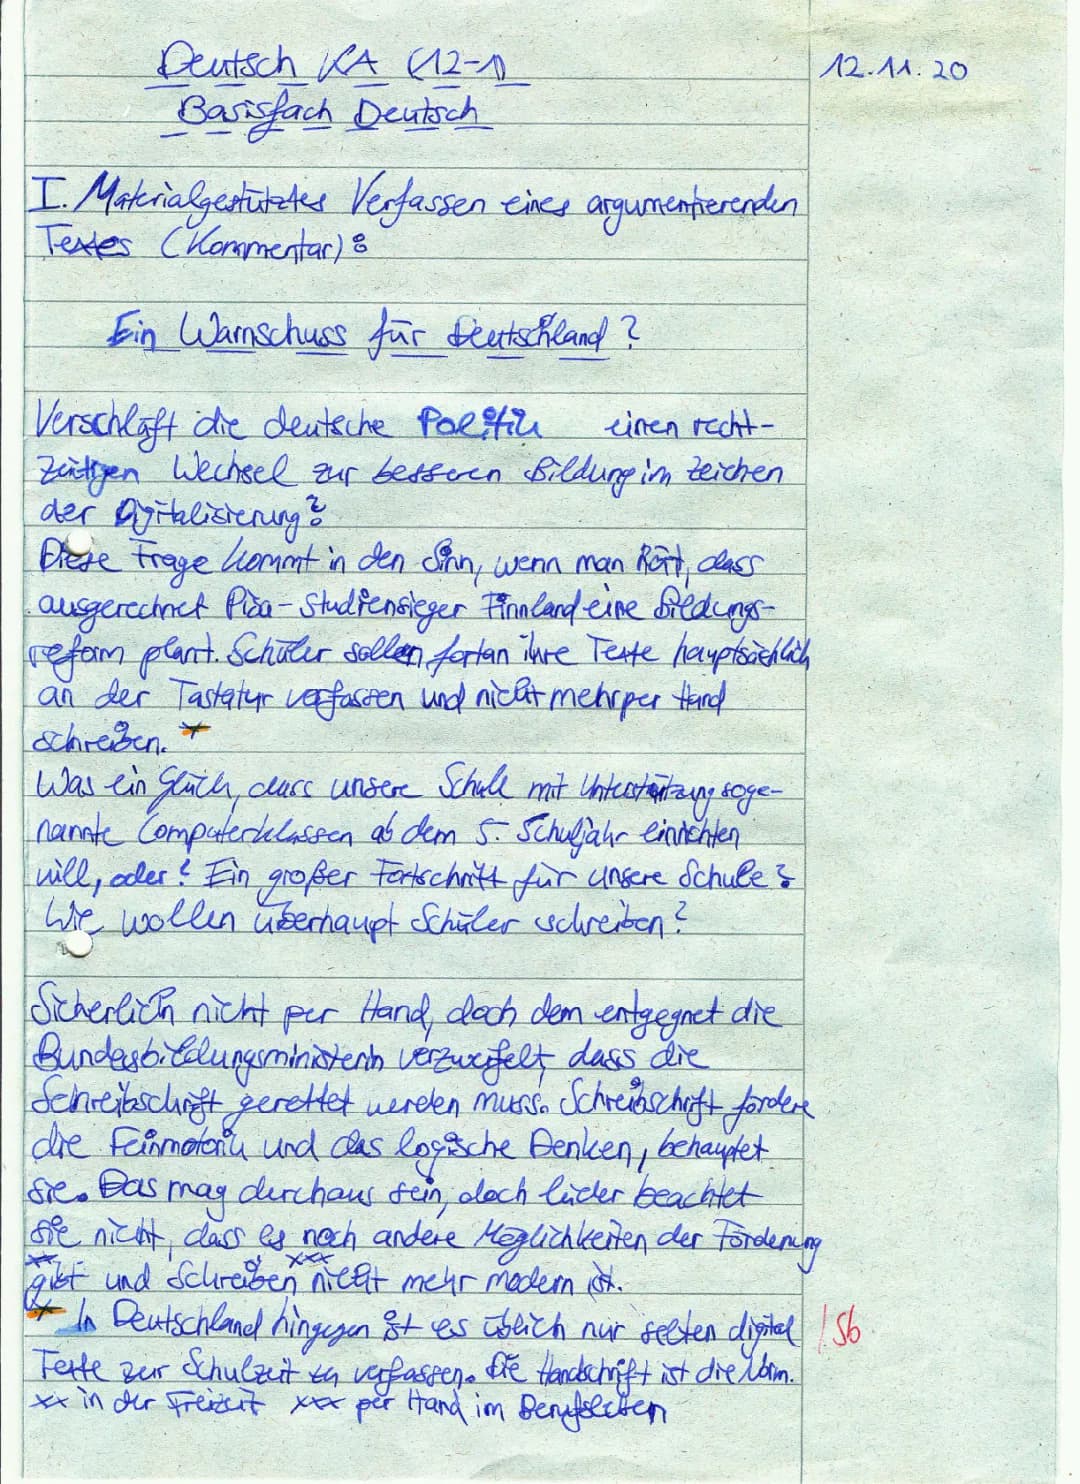 Deutsch KA (12-1)
12.11.20
Basisfach Deutsch
I. Materialgestütztes Verfassen eines argumentierenden
Textes (Kommentar):
Ein Warnschuss für Deutschland?
Verschläft die deutsche Politik einen recht-
zeitigen Wechsel zur besseren Bildung im Zeichen
der Digitalisierung?
Diese Frage kommt in den Sinn, wenn man hört, dass
ausgerechnet Pisa-Studiensieger Finnland eine Bildungs-
reform plant. Schüler sollen fortan ihre Texte hauptsächlich
an der Tastatur verfassen und nicht mehr per Hand
schreiben. *
Was ein Glück, dass unsere Schule mit Unterstützung soge-
nannte Computerklassen ab dem 5. Schuljahr einrichten
will, oder? Ein großer Fortschritt für unsere Schule?
Wie wollen überhaupt Schüler schreiben?
Sicherlich nicht per Hand, doch dem entgegnet die
Bundesbildungsministerin verzweifelt, dass die
Schreibschrift gerettet werden muss. Schreibschrift fördere
die Feinmotorik und das logische Denken, behauptet
sie. Das mag durchaus sein, doch leider beachtet
sie nicht, dass es noch andere Möglichkeiten der Förderung
xx xxx
gibt und Schreiben nicht mehr modern ist.
* In Deutschland hingegen ist es üblich nur selten digital
! Sb
Texte zur Schulzeit zu verfassen. Die Handschrift ist die Norm.
xx in der Freizeit xxx per Hand im Berufsleben